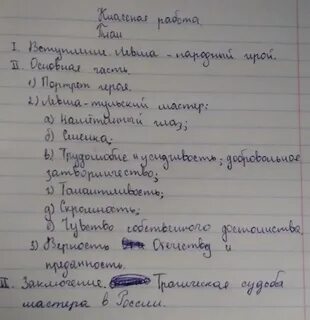 Классная работа
План
I. Вступление. Левша - народный герой.
II. Основная часть
1) Портрет героя.
2) Левша-тульский мастер:
а) Намётанный глаз;
б) Смекалка;
в) Трудолюбие и усидчивость; добровольное
затворничество;
г) Талантливость;
д) Скромность;
е) Чувство собственного достоинства.
3) Верность Отечеству и
преданность.
III. Заключение. Трагическая судьба
мастера в России.